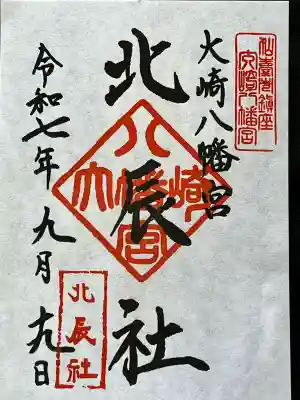 仙臺総鎮座
大崎八幡宮
大崎八幡宮
北辰社
八
大幡崎
宮
令和七年九月十九日
北辰社